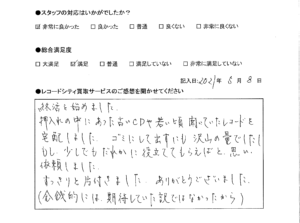 ●スタッフの対応はいかがでしたか？
☑非常に良かった □良かった □普通 □良くない □非常に良くない
●総合満足度
□大満足 ☑満足 □普通 □満足していない □非常に満足していない
記入日：2021年 6月 8日
●レコードシティ買取サービスのご感想を聞かせてください
終活を始めました。
押入れの中にあった古いCDや若い頃聞いていたレコードを
宅配しました。 ごとにして出すにも沢山の量でしたし
もし、少しでもだれかに役立ててもらえばと、思い、
依頼しました。
すっきりと片付きました。ありがとうございました。
(金銭的には、期待していた訳ではなかったから)